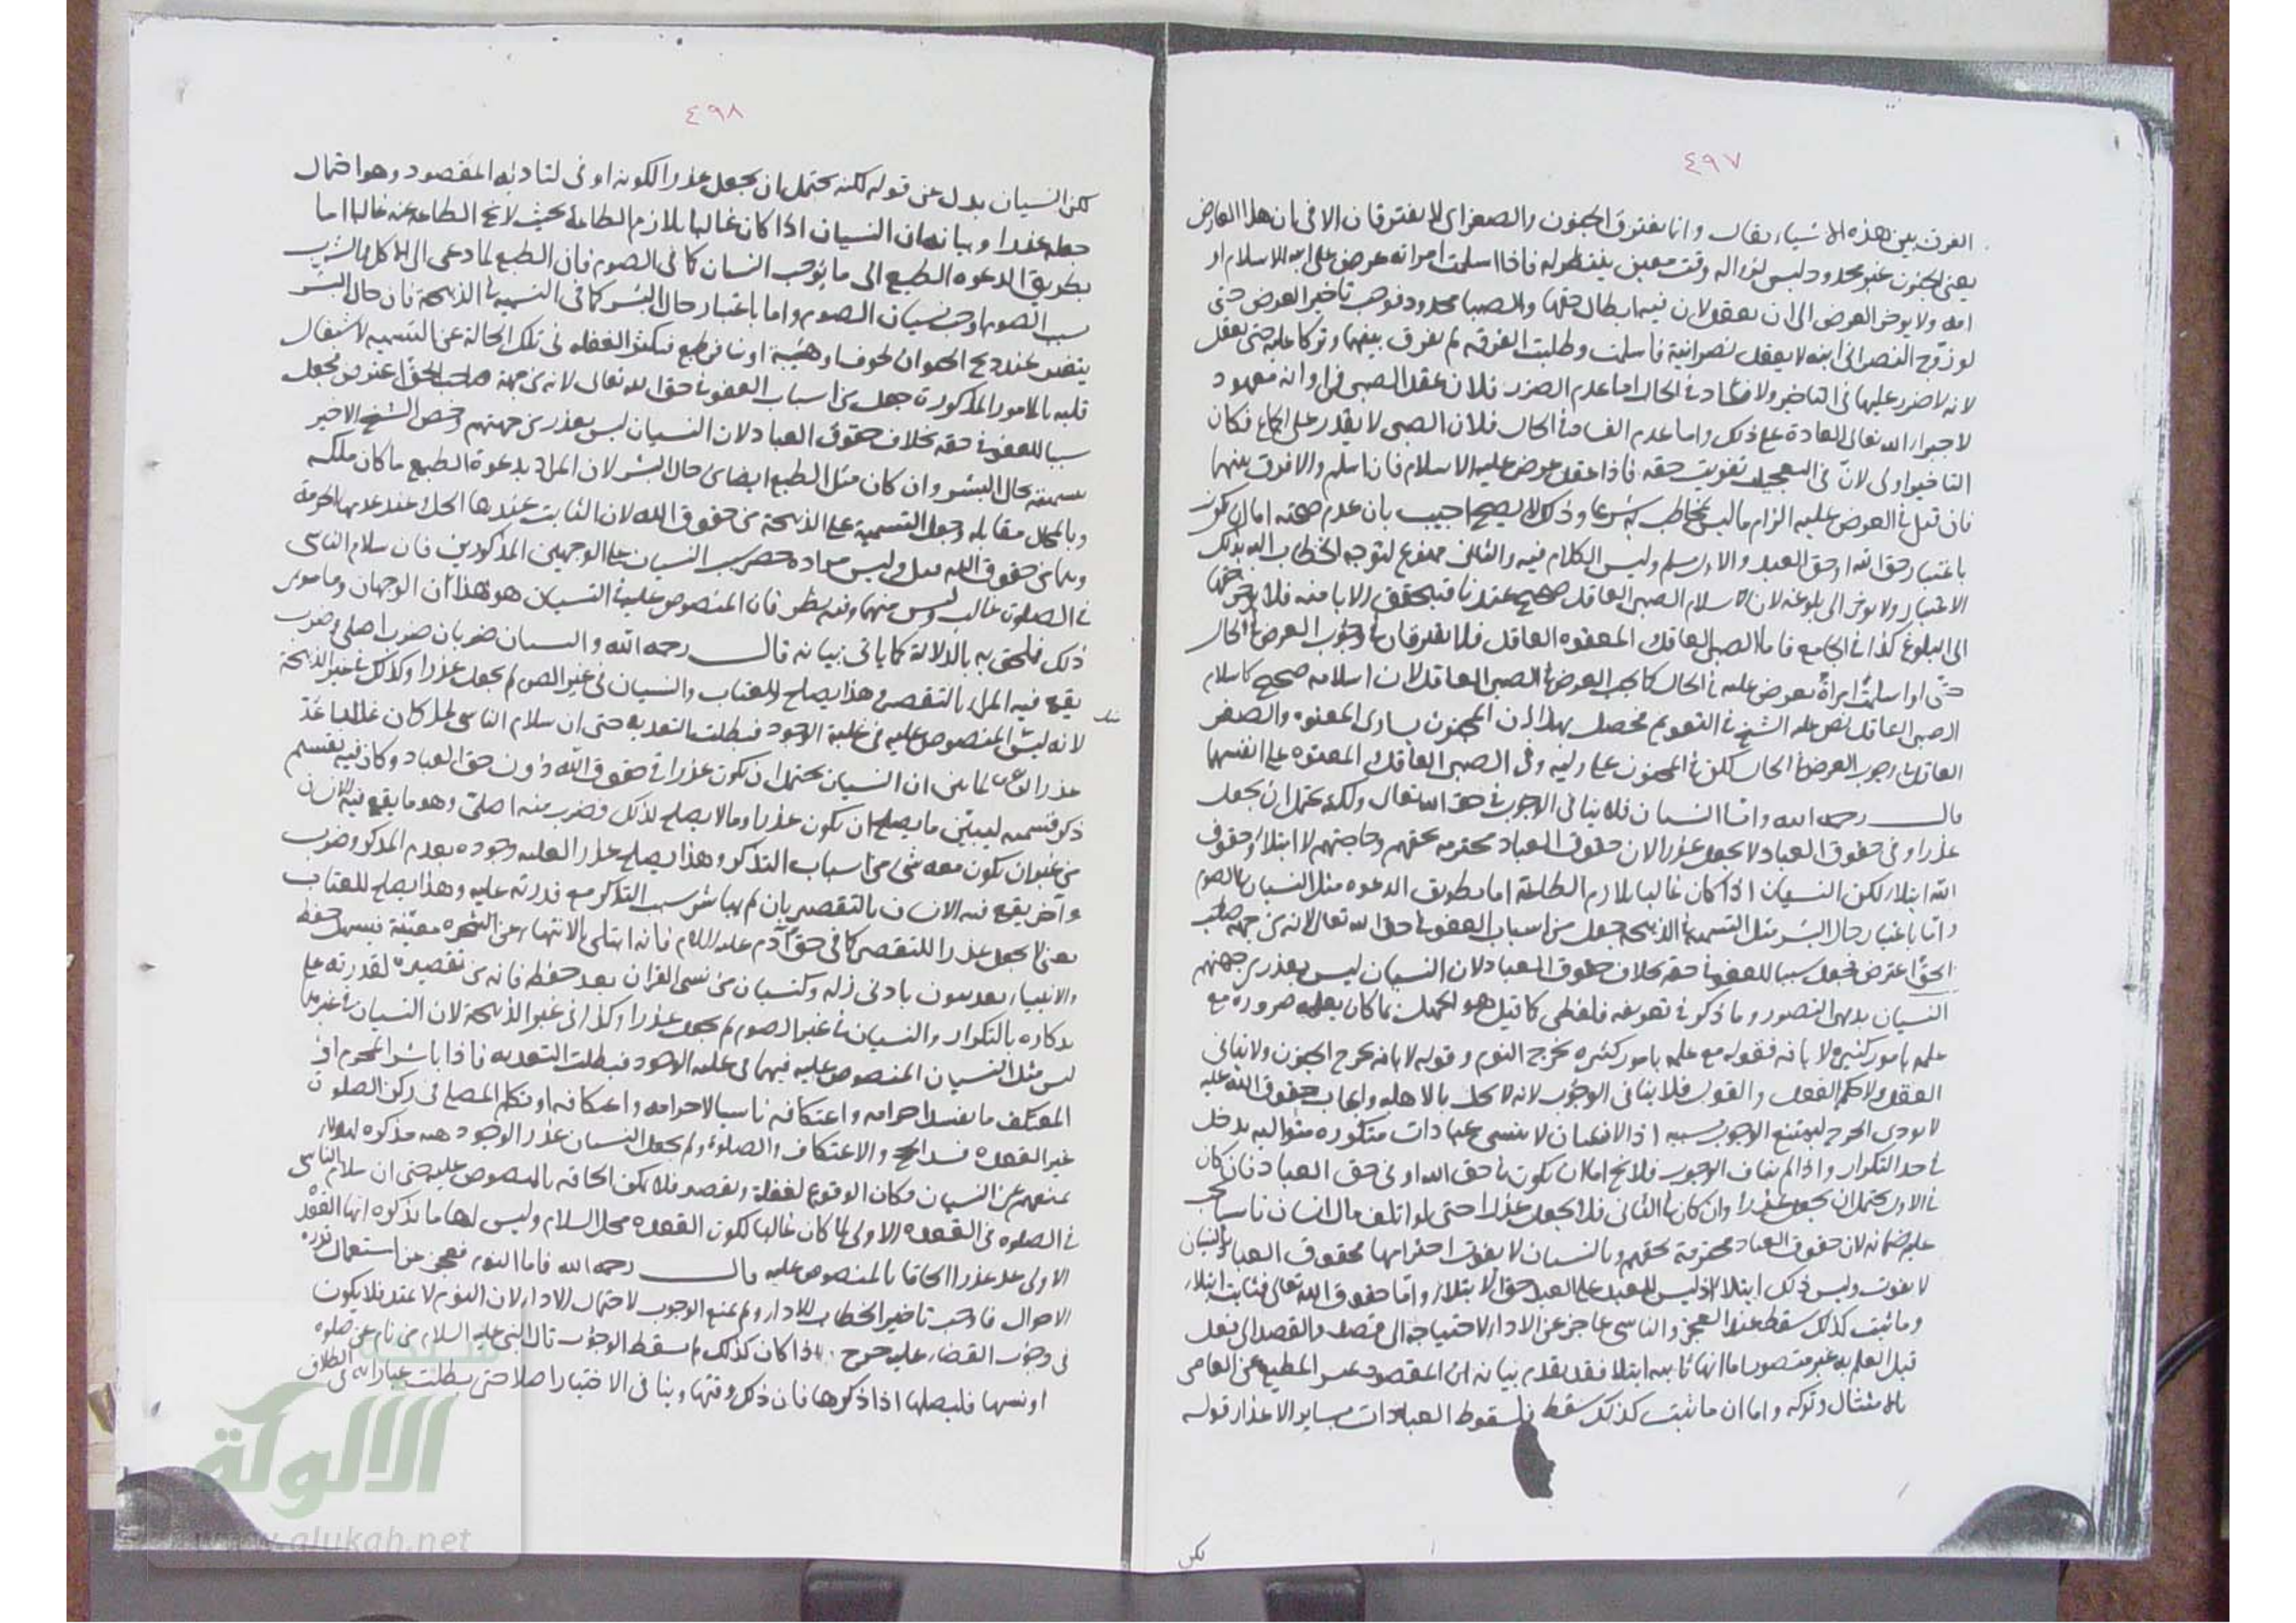 ٤٩٧
الفرق بين هذه الاشياء فقال وانما يفترق الجنون والصغر اى لا يفترقان الا فى ان هذا العارض
يعنى الجنون غير محدود وليس لزواله وقت معين ينتظر له فاذا اسلمت امراته عرض على ابيه الاسلام او
امه ولا يوخر العرض الى ان يعقل لان فيه ابطال حقها والصبا محدود فوجب تاخير العرض حتى
لو زوج النصرانى ابنه لا يعقل نصرانية فاسلمت وطلبت الفرقة لم يفرق بينهما وتركا عليه حتى يعقل
لانه لا ضرر عليها فى التاخير ولا فساد فى الحال اما عدم الضرر فلان عقل الصبى فى اوانه معهود
لاجراء الله تعالى العادة على ذلك واما عدم الفساد فى الحال فلان الصبى لا يقدر على الجماع فكان
التاخير اولى لان فى التعجيل تفويت حقه فاذا عقل عرض عليه الاسلام فان اسلم والا فرق بينهما
فان قيل فى العرض عليه الزام ما ليس بمخاطب به شرعا وذلك لا يصح اجيب بان عدم صحته اما ان يكون
باعتبار حق الله او حق العبد والاول مسلم وليس الكلام فيه والثانى ممنوع لتوجه الخطاب اليه بذلك
الاعتبار ولا يوخر الى بلوغه لان اسلام الصبى العاقل صحيح عندنا فتحقق الابا منه فلا يوخر حقها
الى البلوغ كذا فى الجامع فاما الصبى العاقل المعتوه العاقل فلا يفترقان فى وجوب العرض فى الحال
حتى لو اسلمت امراة يعرض عليه فى الحال كما يجب العرض فى الصبى العاقل لان اسلامه صحيح كاسلام
الصبى العاقل نص عليه الشيخ فى التقويم فحصل بهذا ان المجنون يساوى المعتوه والصغير
العاقل فى وجوب العرض فى الحال لكن فى المجنون على وليه وفى الصبى العاقل المعتوه على انفسهما
قال رحمه الله واما النسيان فلا ينافى الوجوب فى حق الله تعالى ولكنه يحتمل ان يجعل
عذرا وفى حقوق العباد لا يجعل عذرا لان حقوق العباد محترمه لحقهم وحاجتهم لا ابتلاء وحقوق
الله ابتلاء لكن النسيان اذا كان غالبا يلازم الطاعة اما بطريق الدعوه مثل النسيان فى الصوم
واما باعتبار حال البشر مثل التسميه فى الذبيحه جعل من اسباب العفو فى حق الله تعالى لانه من جهة صاحب
الحق اعترض فجعل سببا للعفو فى حقه بخلاف حقوق العباد لان النسيان ليس بعذر من جهتهم
النسيان بديهى التصور وما ذكر فى تعريفه فلفظى كما قيل هو الجهل بما كان يعلمه ضروره مع
علمه بامور كثيره لا بافه فقوله مع علمه بامور كثيره يخرج النوم وقوله لا بافه يخرج الجنون ولا ينافى
العقل ولا حكم الفعل والقول فلا ينافى الوجوب لانه لا يخل بالاهليه وايجاب حقوق الله عليه
لا يودى الحرج ليمتنع الوجوب بسببه اذ الانسان لا ينسى عبادات متكرره متواليه يدخل
فى حد التكرار واذا لم يناف الوجوب فلا يخ اما ان يكون فى حق الله او فى حق العباد فان كان
فى الاول يحتمل ان يجعل عذرا وان كان فى الثانى فلا يجعل عذرا حتى لو اتلف مال انسان ناسيا يجب
عليه ضمانه لان حقوق العباد محترمة لحقهم وبالنسيان لا يفوت احترامها فحقوق العباد بالنسيان
لا يفوت وليس ذلك ابتلاء اذ ليس للعبد على العبد حق الابتلاء واما حقوق الله تعالى فثابت ابتلاء
وما ثبت كذلك سقط عند العجز والناسى عاجز عن الاداء لاحتياجه الى قصد والقصد الى فعل
قبل العلم به غير متصور اما انها ثابته ابتلا فقد تقدم بيانه ان المقصود تميز المطيع عن العاصى
بالامتثال وتركه واما ان ما ثبت كذلك سقط فلسقوط العبادات بساير الاعذار قوله
لكن
٤٩٨
لكن النسيان بدل من قوله لكنه يحتمل ان يجعل عذرا لكونه اوفى لتاديه المقصود وهو احتمال
جعله عذرا وبيانه ان النسيان اذا كان غالبا يلازم الطاعة بحيث لا يخ الطاعه عنه غالبا اما
بطريق الدعوه الطبع الى ما يوجب النسيان كما فى الصوم فان الطبع لما دعى الى الاكل والشرب
بسبب الصوم اوجب نسيان الصوم واما باعتبار حال البشر كما فى التسميه فى الذبيحة فان حال البشر
يتغير عند ذبح الحيوان لخوف وهيبة او تنافر طبع فيكثر الغفله فى تلك الحالة عن التسميه لاشتغال
قلبه بالامور المذكورة جعل من اسباب العفو فى حق الله تعالى لانه من جهة صاحب الحق اعترض فجعل
سببا للعفو فى حقه بخلاف حقوق العباد لان النسيان ليس بعذر من جهتهم وخص الشيخ الاخير
بتسميته بحال البشر وان كان مثل الطبع ايضا من حال البشر لان المراد بدعوة الطبع ما كان ملكه
وبالحال مقابله وجعل التسمية على الذبيحة من حقوق الله لان الثابت عندها الحل وعند عدمها الحرمة
وهما من حقوق الله وليس مراده حصر سبب النسيان على الوجهين المذكورين فان سلام الناسى
فى الصلوة غالب وليس منهما وفيه نظر فان المنصوص عليه فى النسيان هو هذان الوجهان وما سوى
ذلك فملحق به بالدلالة كما ياتى بيانه قال رحمه الله والنسيان ضربان ضرب اصلى وضرب
يقع فيه المرء بالتقصير وهذا يصلح للعتاب والنسيان فى غير الصوم لم يجعل عذرا وكذلك فى غير الذبيحة
لانه ليس مثل المنصوص عليه فى غلبة الوجود فبطلت التعديه حتى ان سلام الناسى لما كان غالبا عد
عذرا لما بين ان النسيان يحتمل ان يكون عذرا فى حقوق الله دون حق العباد وكان فيه تقسيم
ذكر تقسيمه ليبين ما يصلح ان يكون عذرا وما لا يصلح لذلك فضرب منه اصلى وهو ما يقع فيه الانسان
من غير ان يكون معه شىء من اسباب التذكر وهذا يصلح عذرا لغلبه وجوده بعدم المذكر وضرب
واخر يقع فيه الانسان بالتقصير بان لم يباشر سبب التذكر مع قدرته عليه وهذا يصلح للعتاب
يعنى لا يجعل عذرا للتقصير كما فى حق ادم عليه السلام فانه ابتلى بالانتهاء عن الشجره معينة فيسهل حفظه
والانبياء يعاتبون بادنى زله وكنسيان من نسى القران بعد حفظه فانه من تقصيره لقدرته على
تذكاره بالتكرار والنسيان فى غير الصوم لم يجعل عذرا وكذا فى غير الذبيحة لان النسيان فى غيرهما
ليس مثل النسيان المنصوص عليه فيهما فى غلبه الوجود فبطلت التعديه فاذا باشر المحرم او
المعتكف ما يفسد احرامه واعتكافه ناسيا لاحرامه واعتكافه او تكلم المصلى فى ركن الصلوة
غير القعده فسد الحج والاعتكاف والصلوة ولم يجعل النسيان عذرا لوجود هيئه مذكره لهولاء
تمنعهم عن النسيان فكان الوقوع لغفلة وتقصير فلا يمكن الحاقه بالمنصوص عليه حتى ان سلام الناسى
فى الصلوه فى القعده الاولى لما كان غالبا لكون القعده محل السلام وليس لها ما يذكره انها القعدة
الاولى عد عذرا الحاقا بالمنصوص عليه قال رحمه الله فاما النوم فعجز عن استعمال قدره
الاحوال فاوجب تاخير الخطاب للاداء ولم يمنع الوجوب لاحتمال الاداء لان النوم لا يمتد فلا يكون
فى وجوب القضاء عليه حرج واذا كان كذلك لم يسقط الوجوب قال النبى عليه السلام من نام عن صلوه
او نسيها فليصلها اذا ذكرها فان ذلك وقتها وينافى الاختيار اصلا حتى بطلت عباراته فى الطلاق
الألوكة
www.alukah.net